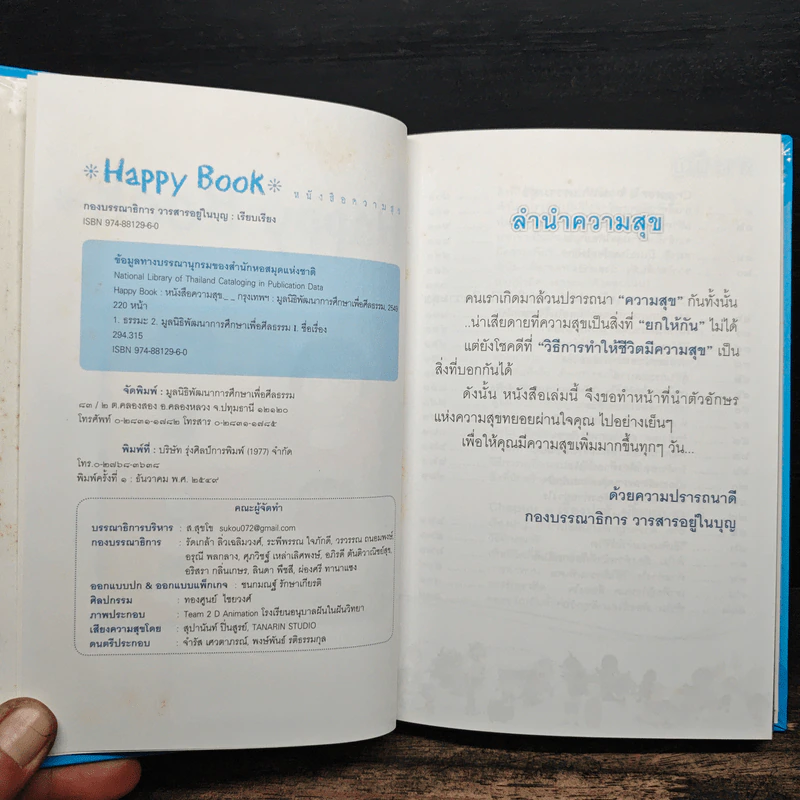 *Happy Book*
หนังสือความสุข
กองบรรณาธิการ วารสารอยู่ในบุญ : เรียบเรียง
ISBN 974-88129-6-0
ข้อมูลทางบรรณานุกรมของสำนักหอสมุดแห่งชาติ
National Library of Thailand Cataloging in Publication Data
Happy Book : หนังสือความสุข_ _ กรุงเทพฯ : มูลนิธิพัฒนาการศึกษาเพื่อศีลธรรม, 2549
220 หน้า
1. ธรรมะ 2. มูลนิธิพัฒนาการศึกษาเพื่อศีลธรรม I. ชื่อเรื่อง
294.315
ISBN 974-88129-6-0
จัดพิมพ์ : มูลนิธิพัฒนาการศึกษาเพื่อศีลธรรม
๘๓ / ๒ ต.คลองสอง อ.คลองหลวง จ.ปทุมธานี ๑๒๑๒๐
โทรศัพท์ ๐-๒๘๓๑-๑๗๘๒ โทรสาร ๐-๒๘๓๑-๑๗๘๕
พิมพ์ที่ : บริษัท รุ่งศิลป์การพิมพ์ (1977) จำกัด
โทร.๐-๒๗๖๘-๓๖๓๘
พิมพ์ครั้งที่ ๑ : ธันวาคม พ.ศ. ๒๕๔๙
คณะผู้จัดทำ
บรรณาธิการบริหาร : ส.สุขโข sukou072@gmail.com
กองบรรณาธิการ : รัดเกล้า ลิ่วเฉลิมวงศ์, ระพีพรรณ ใจภักดี, วรวรรณ ถนอมพงษ์,
อรุณี พลกลาง, ศุภวิชฐ์ เหล่าเลิศพงษ์, อภิรดี ตันติวาณิชย์สุข,
อริสรา กลิ่นเกษร, ลินดา พืชสี, ผ่องศรี ทานาแซง
ออกแบบปก & ออกแบบแพ็กเกจ : ชนกมณฐ์ รักษาเกียรติ
ศิลปกรรม : ทองศูนย์ ไชยวงศ์
ภาพประกอบ : Team 2 D Animation โรงเรียนอนุบาลฝันในฝันวิทยา
เสียงความสุขโดย : สุปานันท์ ปิ่นสุรย์, TANARIN STUDIO
ดนตรีประกอบ : จำรัส เศวตาภรณ์, พงษ์พันธ์ รติธรรมกุล
ลำนำความสุข
คนเราเกิดมาล้วนปรารถนา “ความสุข” กันทั้งนั้น
..น่าเสียดายที่ความสุขเป็นสิ่งที่ “ยกให้กัน” ไม่ได้
แต่ยังโชคดีที่ “วิธีการทำให้ชีวิตมีความสุข” เป็น
สิ่งที่บอกกันได้
ดังนั้น หนังสือเล่มนี้ จึงขอทำหน้าที่นำตัวอักษร
แห่งความสุขทยอยผ่านใจคุณ ไปอย่างเย็นๆ
เพื่อให้คุณมีความสุขเพิ่มมากขึ้นทุกๆ วัน...
ด้วยความปรารถนาดี
กองบรรณาธิการ วารสารอยู่ในบุญ